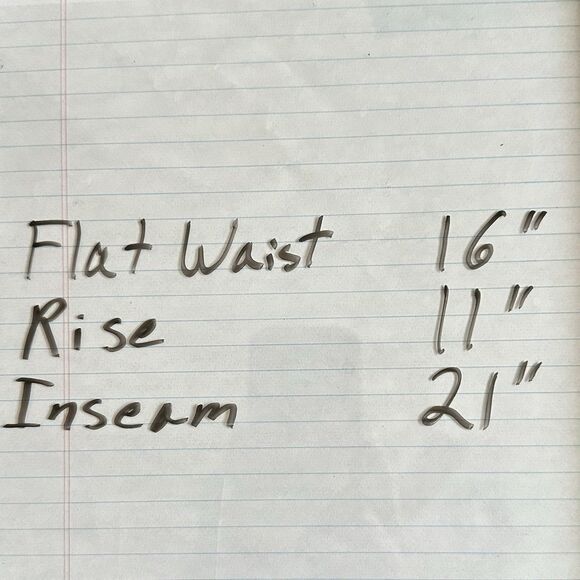 Flat Waist 16"
Rise 11"
Inseam 21"